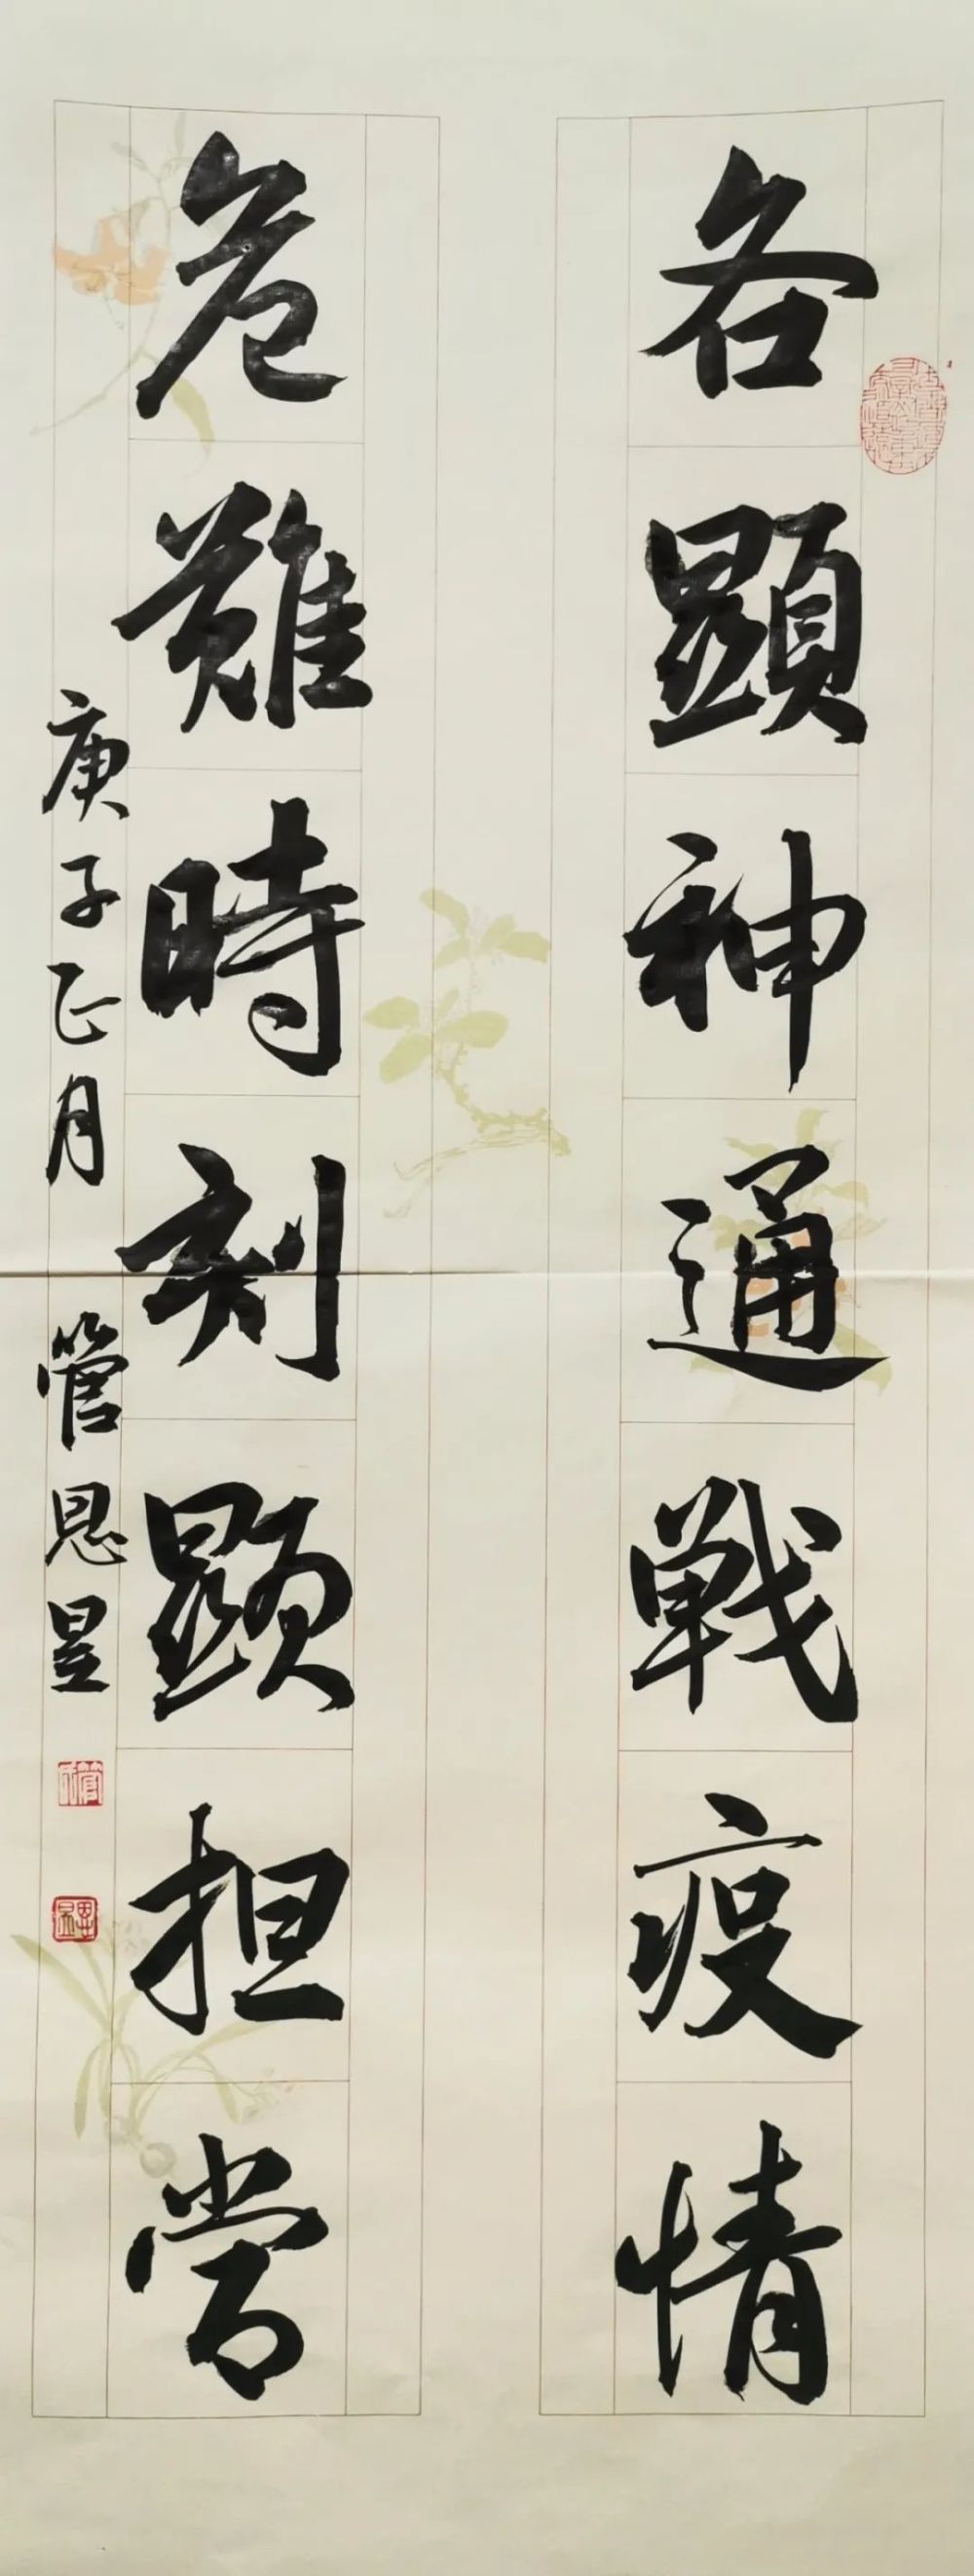 各顯神通戰疫情
危難時刻顯担當
庚子正月 管恩昱